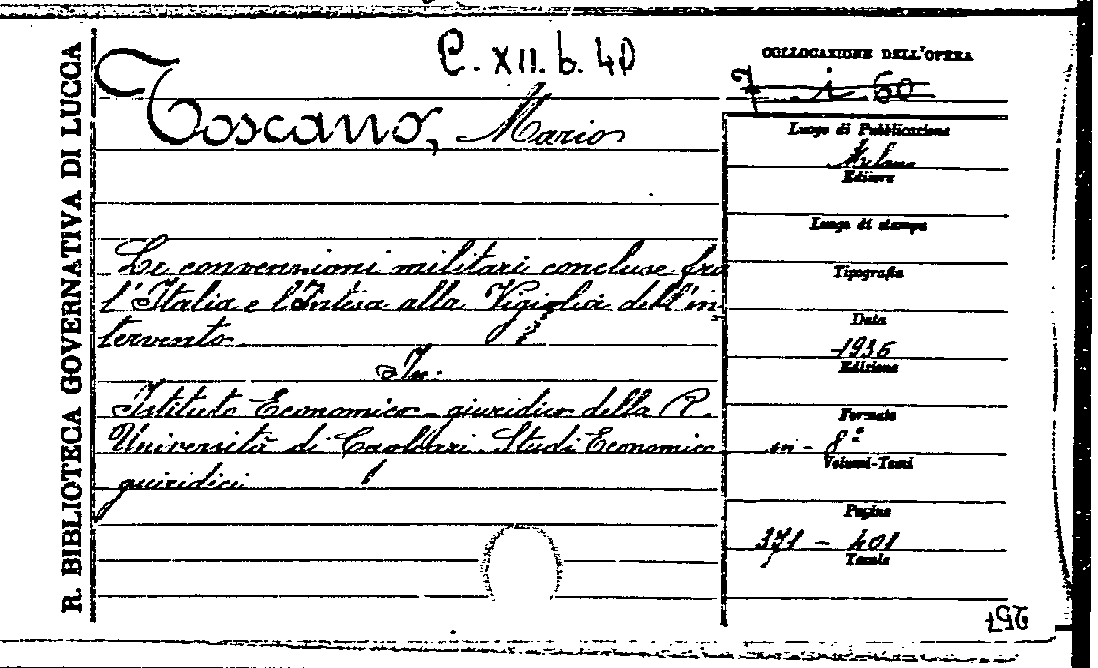 R. BIBLIOTECA GOVERNATIVA DI LUCCA
C. XII. b. 40
COLLOCAZIONE DELL'OPERA
7 i 60
Toscano, Mario
Luogo di Pubblicazione
Milano
Editore
Luogo di stampa
Tipografia
Data
1936
Edizione
Formato
in - 8º
Volumi-Tomi
Pagine
371 - 401
Tavole
Le convenzioni militari concluse fra
l'Italia e l'Intesa alla Vigiglia dell'in-
tervento.
In:
Istituto Economico-giuridico della R.
Università di Cagliari. Studi Economico
giuridici
257